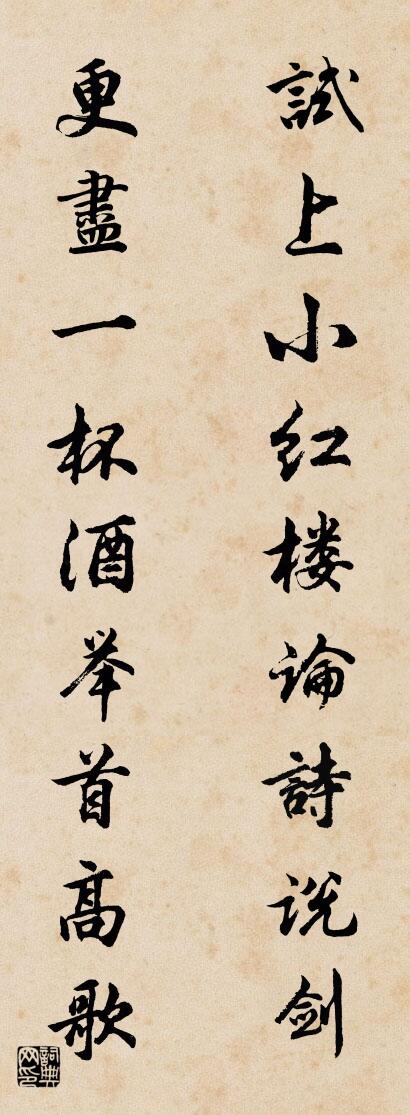 試上小红楼論詩说剑
更盡一杯酒举首高歌
詞典网印